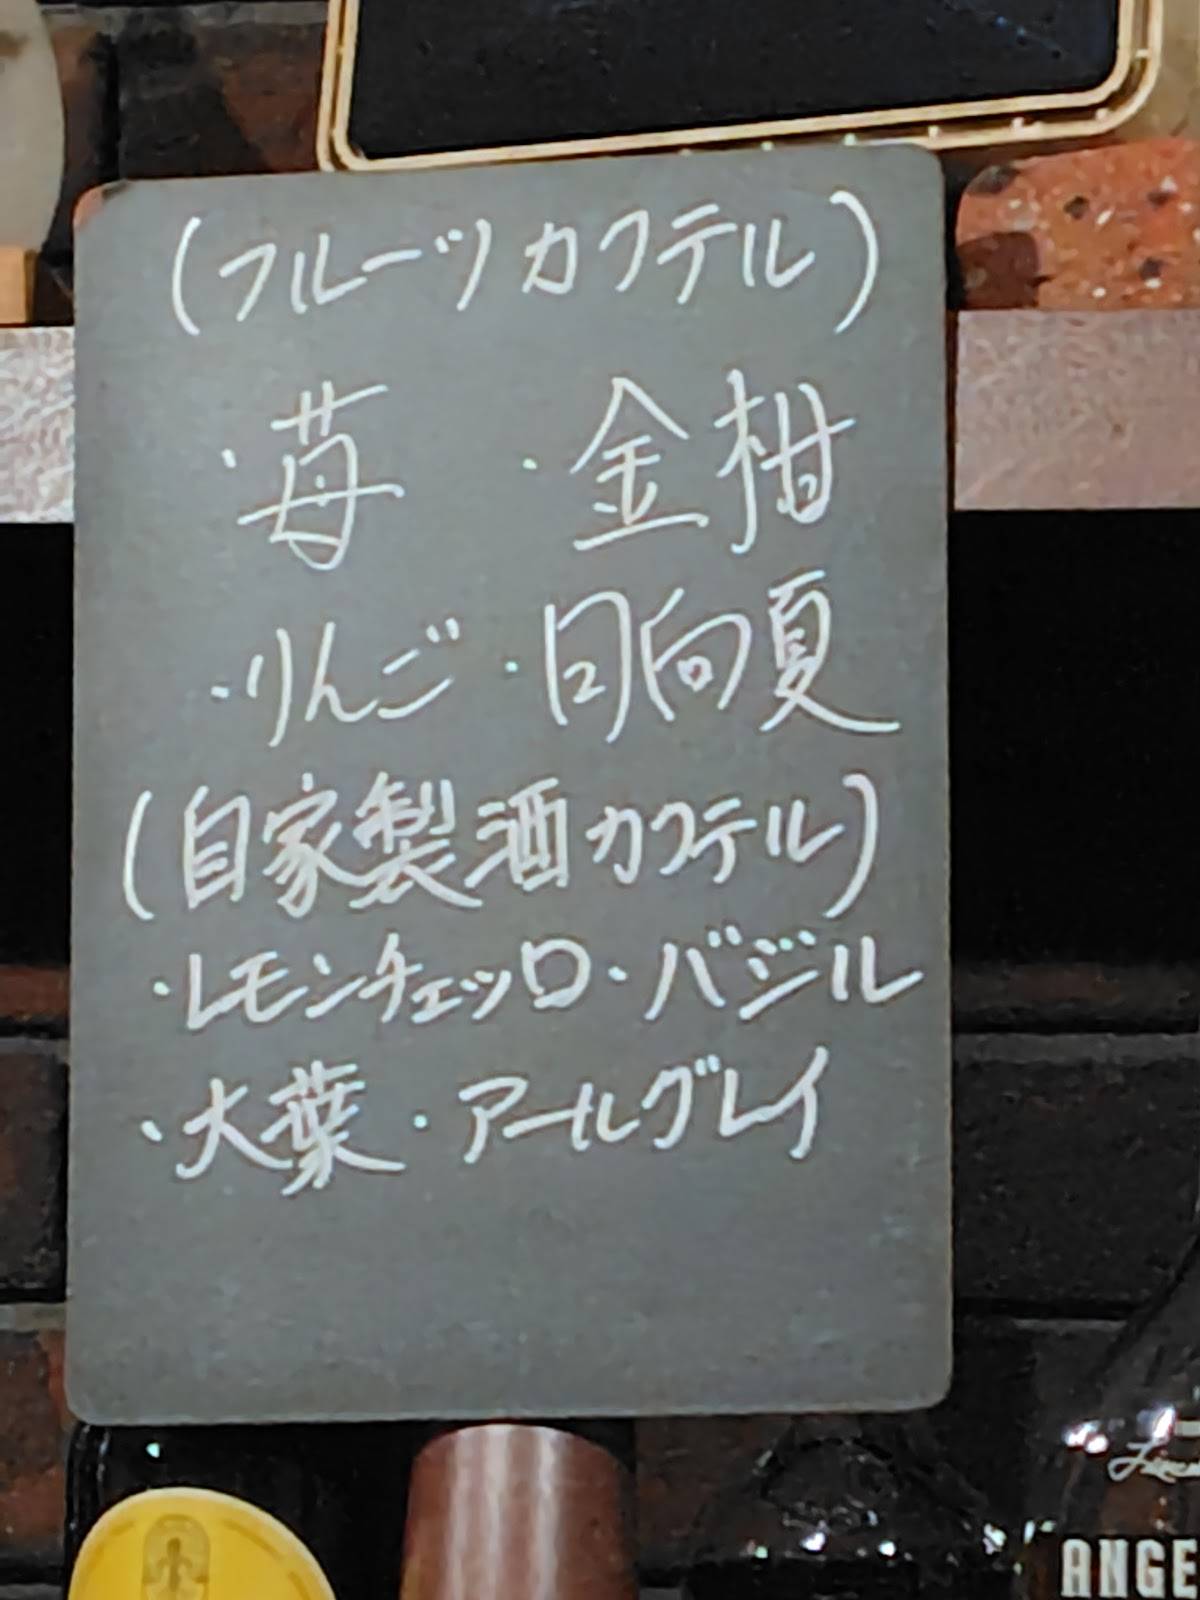 (フルーツカクテル)
・苺 ・金柑
・りんご ・日向夏
(自家製酒カクテル)
・レモンチェッロ・バジル
・大葉・アールグレイ
ANGE